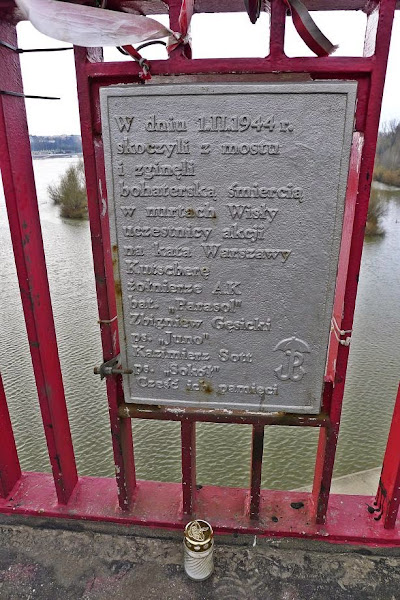 W dniu 1.II.1944 r.
skoczyli z mostu
i zginęli
bohaterską śmiercią
w nurtach Wisły
uczestnicy akcji
na kata Warszawy
Kutscherę
żołnierze AK
bat. „Parasol"
Zbigniew Gęsicki
ps. „Juno"
Kazimierz Sott
ps. „Sokół"
Cześć ich pamięci